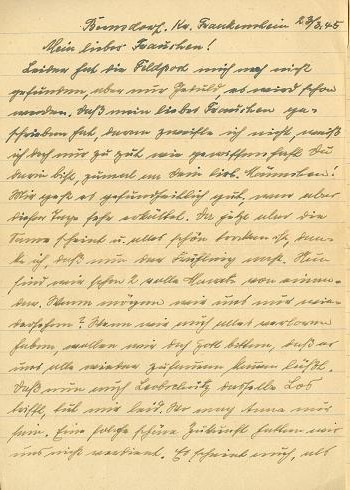 Baumsdorf, Kr. Frankenstein 23/3.45
Mein liebes Frauchen!
Leider hat die Feldpost mich noch nicht
gefunden, aber nur Geduld es wird schon
werden, daß mein liebes Frauchen ge-
schrieben hat, daran zweifle ich nicht, weiß
ich doch nur zu gut wie gewissenhaft Du
darin bist, zumal an Dein lieb. Männchen!
Mir geht es gesundheitlich gut, war aber
dieser Tage sehr erkältet. Da jetzt aber die
Sonne scheint u. alles schön trocken ist, den-
ke ich daß nun der Frühling naht. Nun
sind wir schon 2 volle Monate von einan-
der. Wann mögen wir uns nur wie-
dersehen? Wenn wir auch alles verloren
haben, wollen wir doch Gott bitten, daß er
uns alle wieder zusammen kommen läßt.
Daß nun auch Leobschütz dasselbe Los
trifft, tut mir leid. Wo mag nur
sein. Eine solche schöne Zukunft hatten wir
uns nicht verdient. Es scheint auch, als